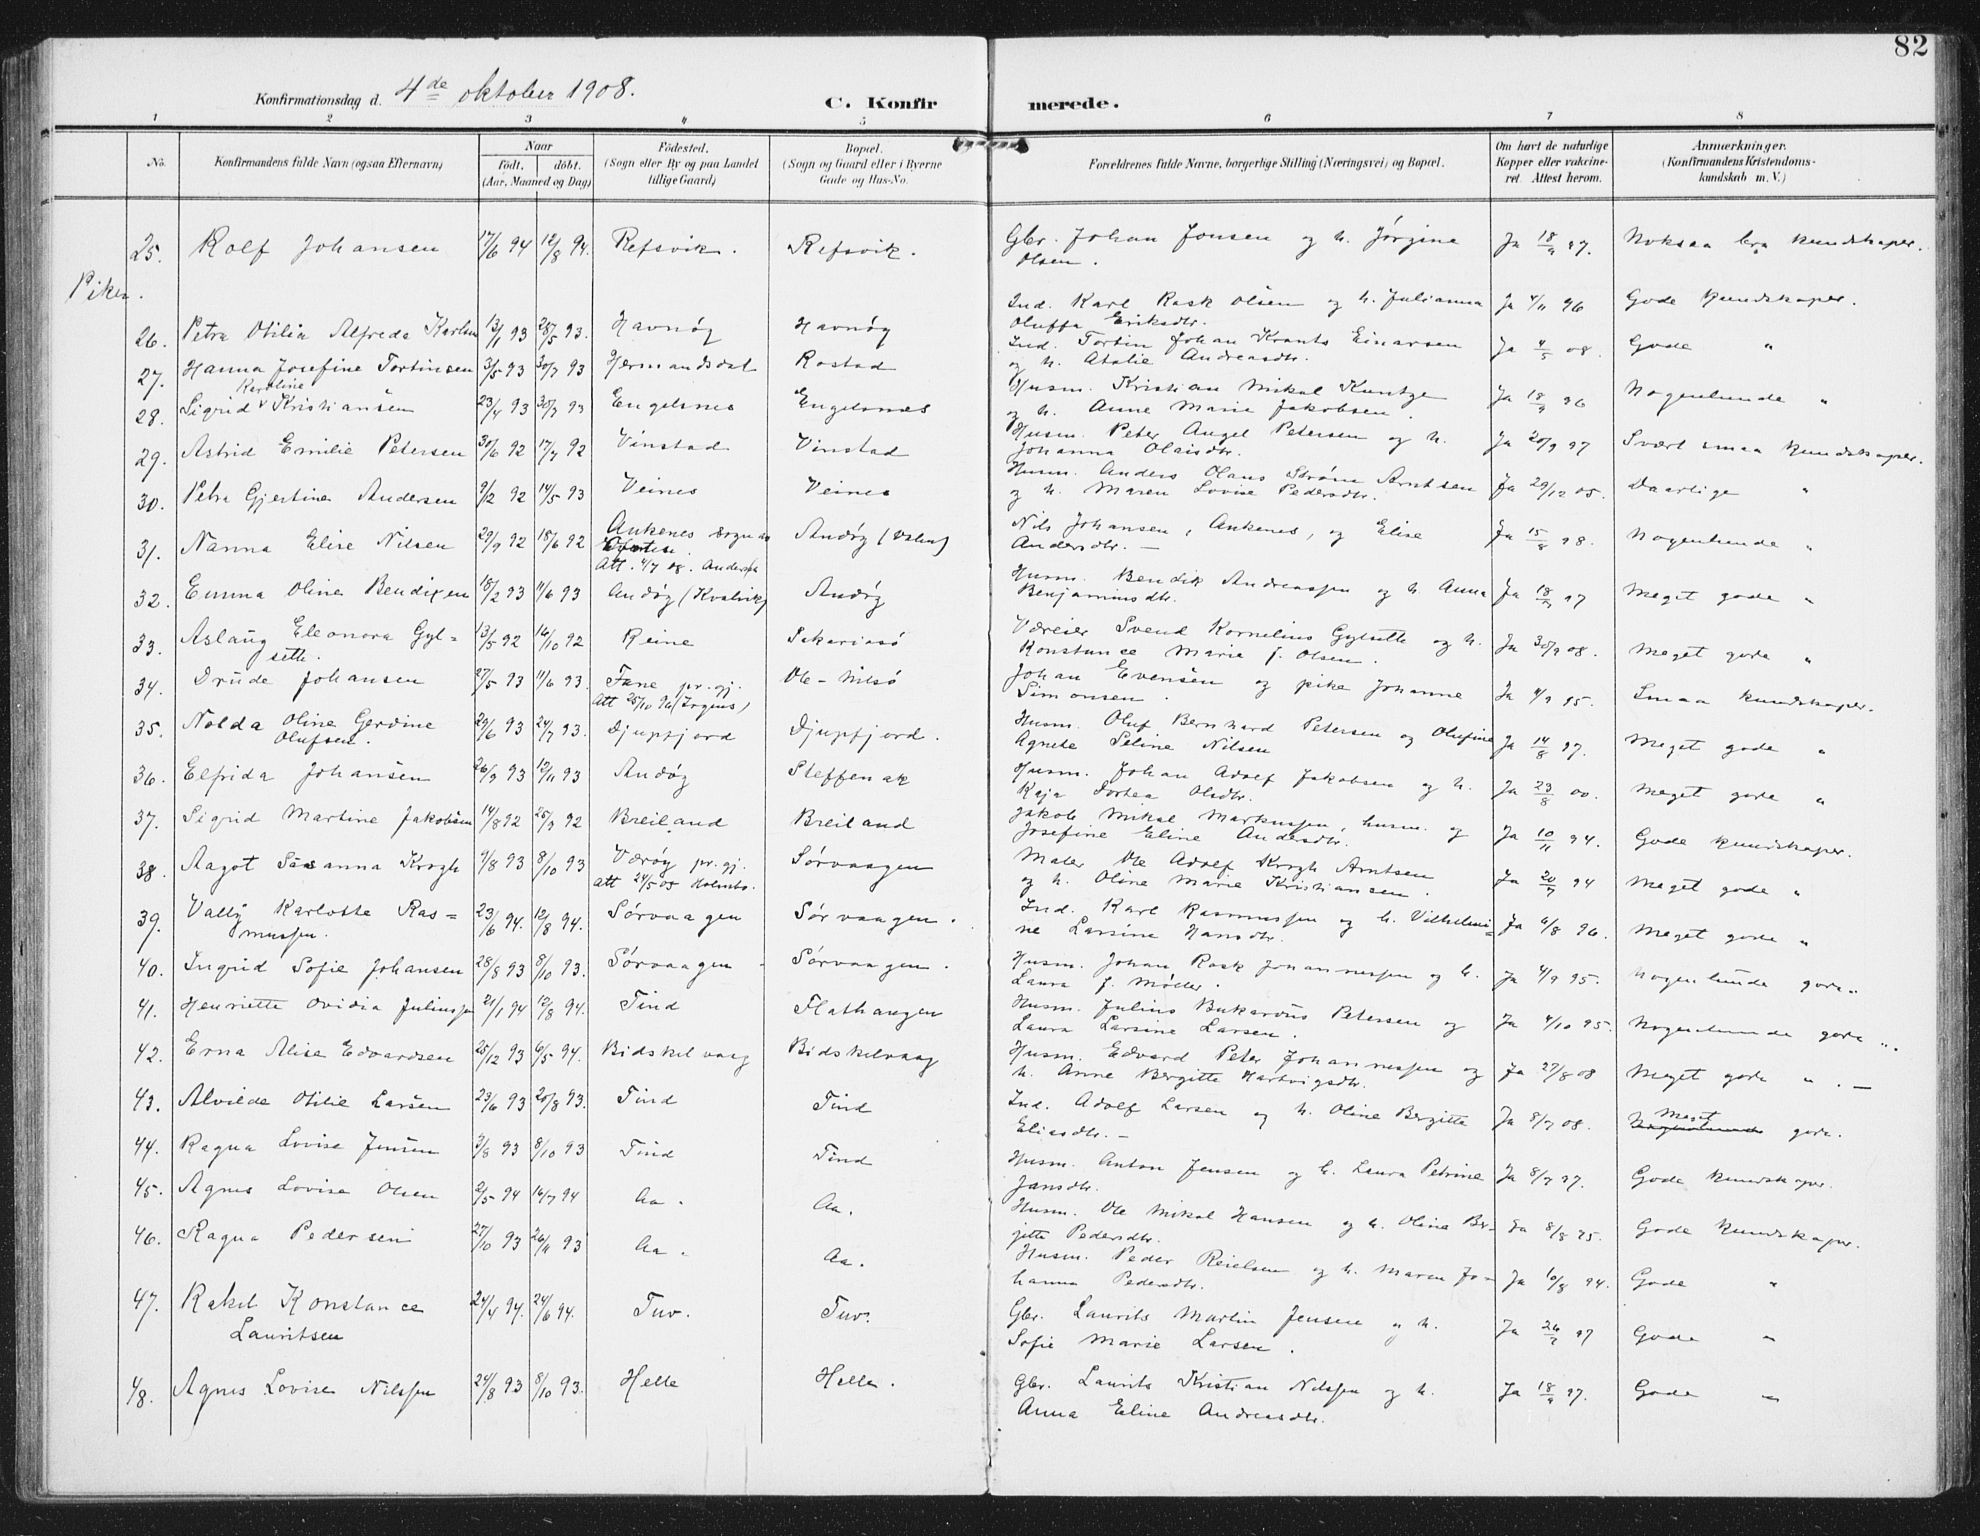 82
Konfirmationsdag d. 4de oktober 1908. C. Konfirmerede.
1 2 3 4 5 6 7 8
No. Konfirmandens fulde Navn (ogsaa Efternavn) Naar født, døbt. (Aar, Maaned og Dag) Fødested. (Sogn eller By og paa Landet tillige Gaard) Bopæl. (Sogn og Gaard eller i Byerne Gade og Hus-No. Forældrenes fulde Navne, borgerlige Stilling (Næringsvei) og Bopæl. Om havt de naturlige Kopper eller vakcineret. Attest herom. Anmerkninger. (Konfirmandens Kristendomskundskab m. V.)
25. Rolf Johansen 17/6 94 12/8 94. Refsvik. Refsvik. Gbr. Johan Jensen og h. Jørgine Olsen. Ja 18/9 97. Noksaa bra kundskaper.
Piker.
26. Petra Otilia Alfreda Karlsen 13/1 93 28/5 93. Havnøy Havnøy Ind. Karl Rask Olsen og h. Julianna Oluffa Eriksdtr. Ja 4/11 96 Gode kundskaper.
27. Hanna Josefine Tortinsen 3/5 93 30/7 93 Hermandsdal Rostad Ind. Tortin Johan Krants Einarsen og h. Atalie Andreasdtr. Ja 4/5 08. Gode "
28. Sigrid Karoline Kristiansen 23/4 93 30/7 93 Engelsnes Engelsnes Husm. Kristian Mikal Kuntze og h. Anne Marie Jakobsen. Ja 18/9 96 Nogenlunde "
29. Astrid Emilie Petersen 30/6 92 17/7 92 Vinstad Vinstad Husm. Peter Angel Petersen og h. Johanna Olaisdtr. Ja 20/9 97 Svært smaa kundskaper.
30. Petra Gjertine Andersen 9/2 92 14/5 93 Veines Veines Husm. Anders Hans Strøm Arntsen og h. Maren Lovise Pedersdtr. Ja 29/12 05. Daarlige "
31. Nanna Elise Nilsen 29/7 92 18/6 92 Ankenes sogn Att. 4/7 08. Andøy Nils Johansen, Ankenes, og Elise Andersdtr. — Ja 15/8 98. Nogenlunde "
32. Emma Oline Bendixen 18/2 93 11/6 93 Andøy (Kvalvik) Andøy Husm. Bendik Andreassen og h. Anna Benjaminsdtr. Ja 18/9 97 Meget gode "
33. Aslaug Eleonora Gylseth. 13/5 92 16/10 92 Reine Sakariasø Væreier Svend Kornelius Gylseth og h. Konstance Marie J. Olsen. Ja 30/9 08. Meget gode "
34. Drude Johansen 27/5 93 11/6 93. Fane pr. gj. Att 25/10 96 Ole-Nilsø Johan Evensen og pike Johanne Simonsen. Ja 4/9 95. Smaa kundskaper.
35. Nolda Oline Gerdine Olufsen. 29/6 93 24/7 93. Djupfjord Djupfjord. Husm. Oluf Bernhard Petersen og Olufine Agnete Seline Nilsen Ja 14/8 97. Meget gode "
36. Elfrida Johansen 26/9 93 12/11 93 Andøy Steffenak Husm. Johan Adolf Jakobsen og h. Kaja Dortea Olsdtr. Ja 23/8 00. Meget gode "
37. Sigrid Martine Jakobsen 14/8 92 25/9 92 Breiland Breiland Jakob Mikal Markussen, husm. og Josefine Eline Andersdtr. Ja 10/11 94. Gode kundskaper.
38. Aagot Susanna Krogh 9/8 93 8/10 93 Værøy pr. gj. Att 24/5 08 Sørvaagen Maler Ole Adolf Krogh Arntsen og h. Oline Marie Kristiansen. Ja 20/7 94 Meget gode "
39. Vally Karlotte Rasmussen. 23/6 94. 12/8 94. Sørvaagen Sørvaagen. Ind. Karl Rasmussen og h. Vilhelmine Larsine Hansdtr. Ja 6/8 96. Meget gode "
40. Ingrid Sofie Johansen 28/8 93 8/10 93. Sørvaagen Sørvaagen. Husm. Johan Rask Johannessen og h. Laura J. Møller. Ja 4/9 95. Nogenlunde gode "
41. Henriette Ovidia Juliussen 21/1 94 12/8 94. Tind Flathaugen Husm. Julius Bukardus Petersen og Laura Larsine Larsen. Ja 4/10 95. Nogenlunde gode "
42. Erna Alise Edvardsen 25/12 93 6/5 94. Bidskelvaag Bidskelvaag Husm. Edvard Peter Johannessen og h. Anne Bergitte Hartvigsdtr. Ja 27/8 08 Meget gode " . —
43. Alvilde Otilie Larsen 23/6 93 20/8 93. Tind Tind Ind. Adolf Larsen og h. Oline Bergitte Eliasdtr. — Ja 8/7 08. Meget Nogenlunde gode.
44. Ragna Lovise Jensen 3/8 93 8/10 93 Tind Tind Husm. Anton Jensen og h. Laura Petrine Jansdtr. Ja 8/7 97. Gode kundskaper.
45. Agnes Lovise Olsen 2/5 94 16/7 94 Aa. Aa. Husm. Ole Mikal Hansen og h. Oline Bergitte Pedersdtr. Ja 8/8 95. Gode kundskaper.
46. Ragna Pedersen 27/10 93 26/11 93 Aa. Aa. Husm. Peder Reielsen og h. Maren Johanna Pedersdtr. Ja 10/8 94. Gode "
47. Rakel Konstance Lauritsen 24/4 94. 24/6 94. Tuv. Tuv. Gbr. Laurits Martin Jensen og h. Sofie Marie Larsen. Ja 26/7 97 Gode "
48. Agnes Lovise Nilssen 24/8 93 8/10 93. Helle Helle. Gbr. Laurits Kristian Nilssen og h. Anna Eline Andreasdtr. Ja 18/9 97. Gode "